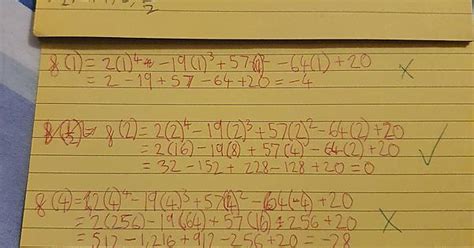 g(1) = 2(1)^4 - 19(1)^3 + 57(1)^2 - 64(1) + 20
= 2 - 19 + 57 - 64 + 20 = -4 ×
g(2) = 2(2)^4 - 19(2)^3 + 57(2)^2 - 64(2) + 20
= 2(16) - 19(8) + 57(4) - 64(2) + 20
= 32 - 152 + 228 - 128 + 20 = 0 ✓
g(4) = 2(4)^4 - 19(4)^3 + 57(4)^2 - 64(4) + 20
= 2(256) - 19(64) + 57(16) - 256 + 20
= 512 - 1,216 + 912 - 256 + 20 = -28 ×